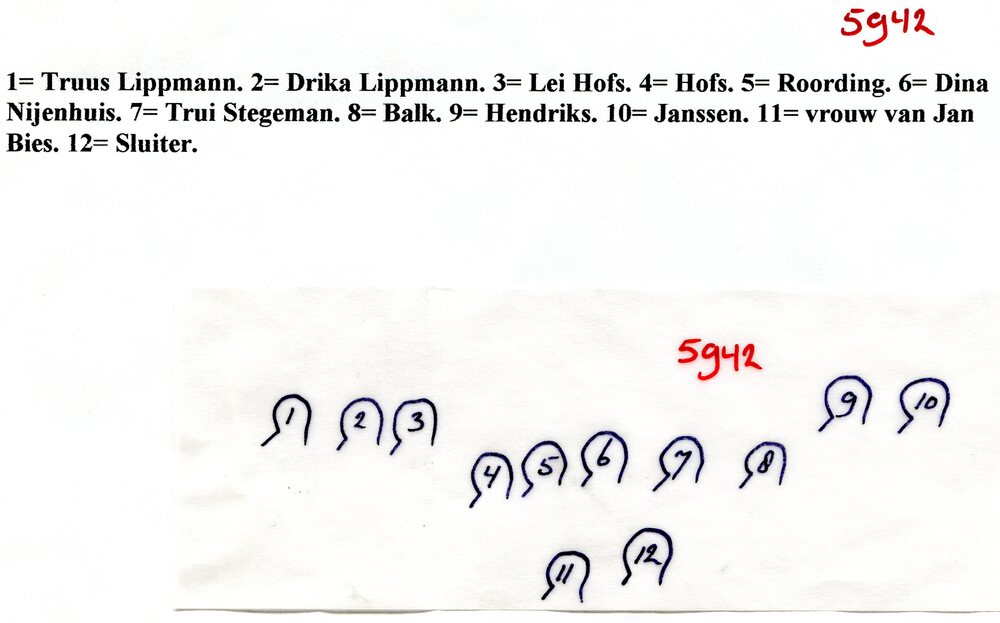 5942
1= Truus Lippmann. 2= Drika Lippmann. 3= Lei Hofs. 4= Hofs. 5= Roording. 6= Dina
Nijenhuis. 7= Trui Stegeman. 8= Balk. 9= Hendriks. 10= Janssen. 11= vrouw van Jan
Bies. 12= Sluiter.
5942
1 2 3 9 10
4 5 6 7 8
11 12